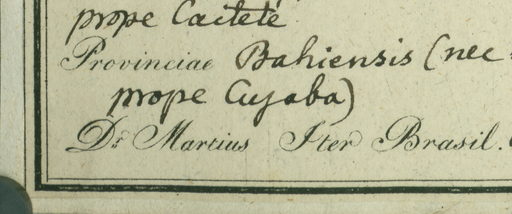 prope Caeteté
Provinciae Bahiensis (nec
prope Cuyaba)
Dr. Martius Iter Brasil.